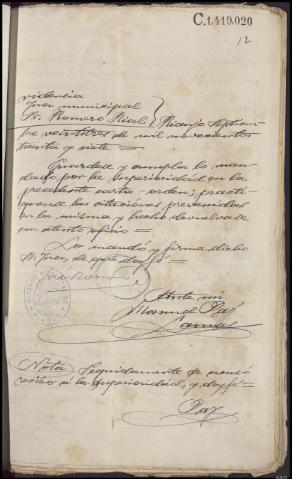 C.1.419.020
12
videncia
Juez municipal
Sr. Romero Rial } Rianjo Septiem-
bre veintitres de mil novecientos
treinta y siete =
Guardese y cumpla lo man-
dado por la Superioridad en la
precedente carta-orden; practi-
quense las citaciones prevenidas
en la misma y hecho devuelvase
con atento oficio =
Lo mandó y firma dicho
Sr. Juez, de que doy fé =
Ante mi
Manuel Paz
Nota: Seguidamente se acusó
recibo a la Superioridad, y doy fé =
Paz